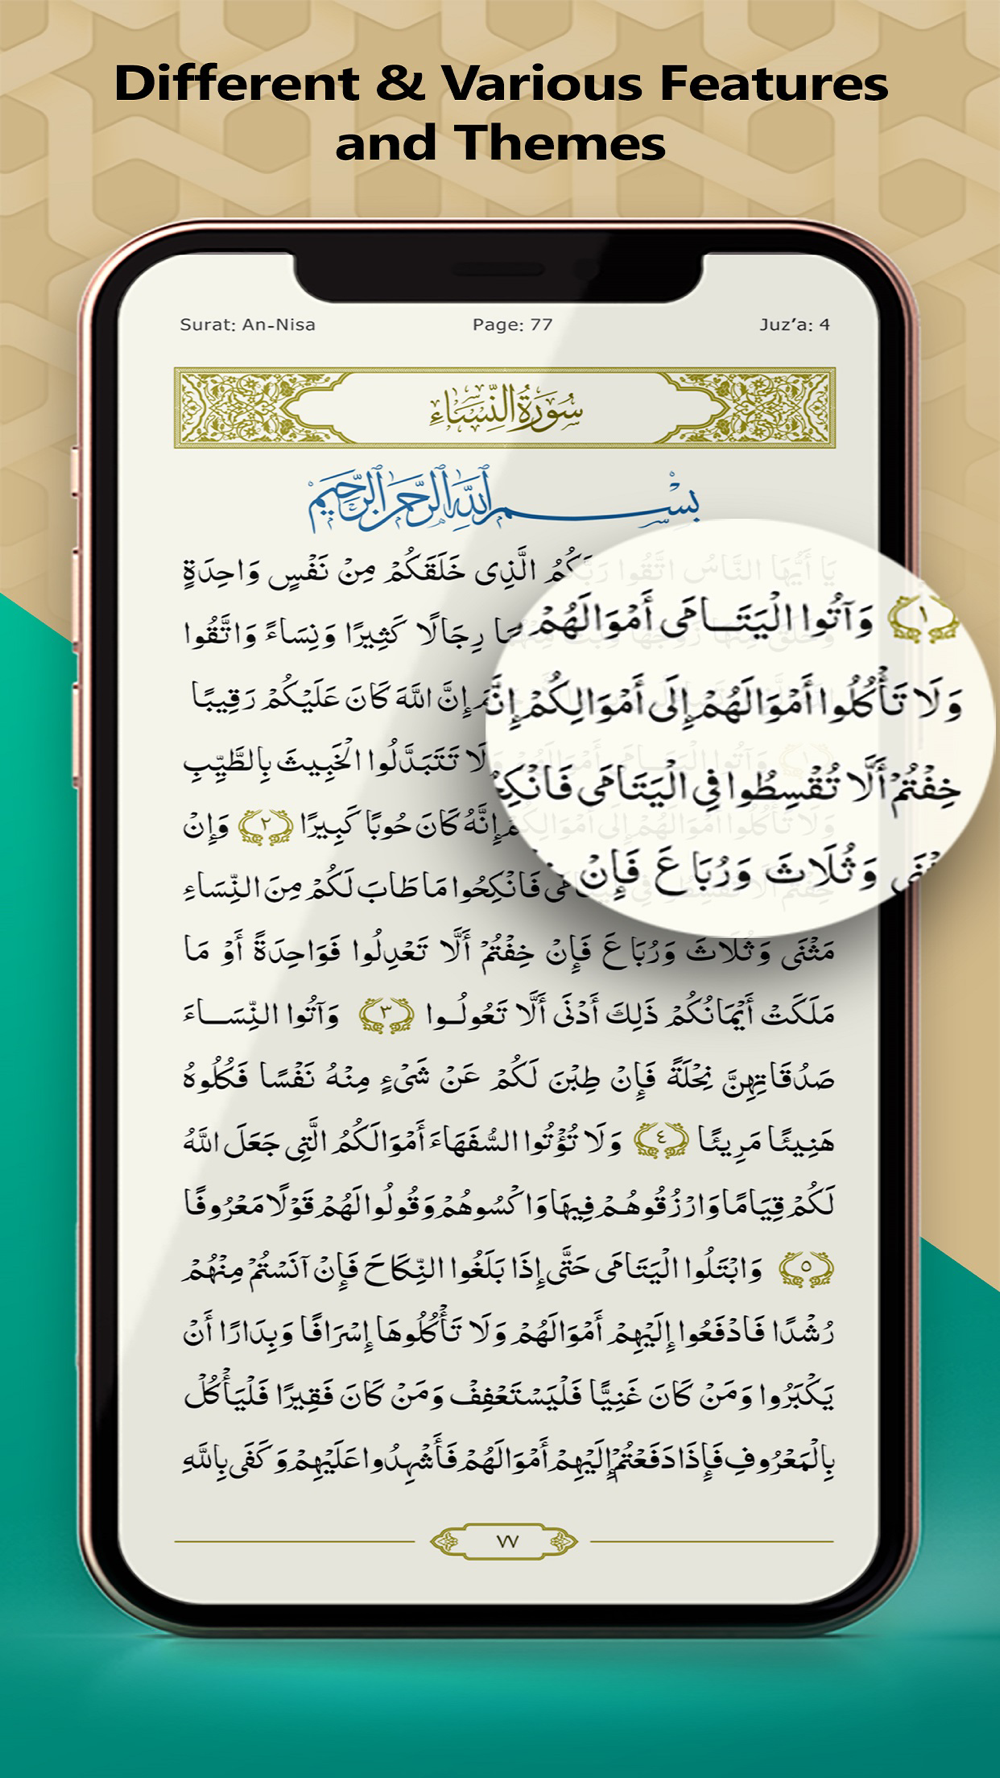 Different & Various Features
and Themes
Surat: An-Nisa Page: 77 Juz’a: 4
سُورَةُ النِّسَاءِ
بِسْمِ اللَّهِ الرَّحْمَٰنِ الرَّحِيمِ
يَا أَيُّهَا النَّاسُ اتَّقُوا رَبَّكُمُ الَّذِى خَلَقَكُمْ مِنْ نَفْسٍ وَاحِدَةٍ
رِجَالًا كَثِيرًا وَنِسَاءً وَاتَّقُوا
إِنَّ اللَّهَ كَانَ عَلَيْكُمْ رَقِيبًا
وَلَا تَتَبَدَّلُوا الْخَبِيثَ بِالطَّيِّبِ
إِنَّهُ كَانَ حُوبًا كَبِيرًا ﴿٢﴾ وَإِنْ
فَانْكِحُوا مَا طَابَ لَكُمْ مِنَ النِّسَاءِ
﴿١﴾ وَآتُوا الْيَتَامَى أَمْوَالَهُمْ
وَلَا تَأْكُلُوا أَمْوَالَهُمْ إِلَى أَمْوَالِكُمْ
خِفْتُمْ أَلَّا تُقْسِطُوا فِي الْيَتَامَى
وَثُلَاثَ وَرُبَاعَ فَإِنْ
مَثْنَى وَثُلَاثَ وَرُبَاعَ فَإِنْ خِفْتُمْ أَلَّا تَعْدِلُوا فَوَاحِدَةً أَوْ مَا
مَلَكَتْ أَيْمَانُكُمْ ذَلِكَ أَدْنَى أَلَّا تَعُولُوا ﴿٣﴾ وَآتُوا النِّسَاءَ
صَدُقَاتِهِنَّ نِحْلَةً فَإِنْ طِبْنَ لَكُمْ عَنْ شَىْءٍ مِنْهُ نَفْسًا فَكُلُوهُ
هَنِيئًا مَرِيئًا ﴿٤﴾ وَلَا تُؤْتُوا السُّفَهَاءَ أَمْوَالَكُمُ الَّتِى جَعَلَ اللَّهُ
لَكُمْ قِيَامًا وَارْزُقُوهُمْ فِيهَا وَاكْسُوهُمْ وَقُولُوا لَهُمْ قَوْلًا مَعْرُوفًا
﴿٥﴾ وَابْتَلُوا الْيَتَامَى حَتَّى إِذَا بَلَغُوا النِّكَاحَ فَإِنْ آنَسْتُمْ مِنْهُمْ
رُشْدًا فَادْفَعُوا إِلَيْهِمْ أَمْوَالَهُمْ وَلَا تَأْكُلُوهَا إِسْرَافًا وَبِدَارًا أَنْ
يَكْبَرُوا وَمَنْ كَانَ غَنِيًّا فَلْيَسْتَعْفِفْ وَمَنْ كَانَ فَقِيرًا فَلْيَأْكُلْ
بِالْمَعْرُوفِ فَإِذَا دَفَعْتُمْ إِلَيْهِمْ أَمْوَالَهُمْ فَأَشْهِدُوا عَلَيْهِمْ وَكَفَى بِاللَّهِ
٧٧